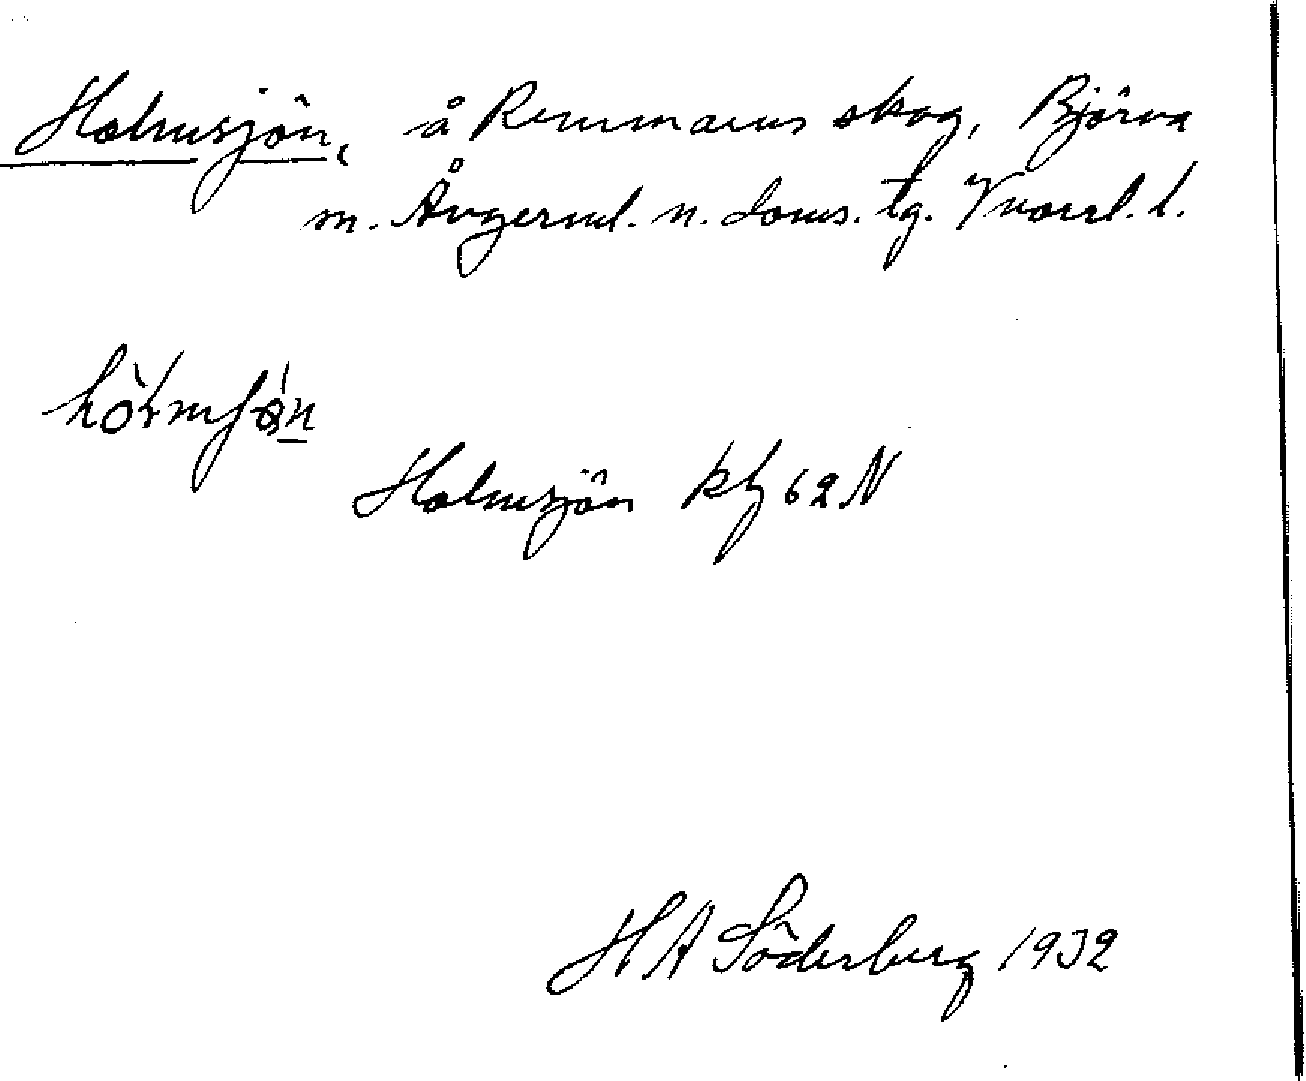 Holmsjön, å Remmarns skog, Björna
m. Ångerml. n. doms. tg. Vnorrl. l.
Holmsjön kf 62 N
H A Söderberg 1932